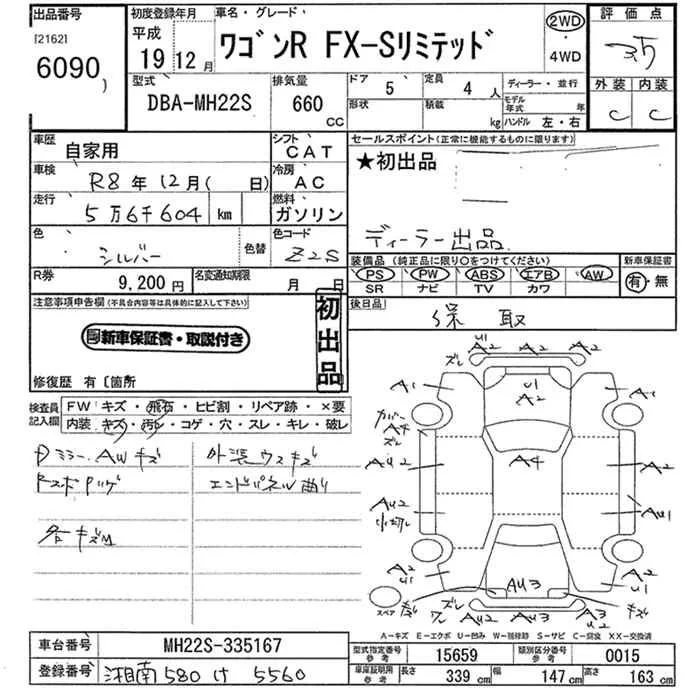 出品番号 初度登録年月 車名・グレード 2WD 評価点
[2162] 平成
6090 19 12月 ワゴンR FX-Sリミテッド ・ 3.5
4WD
型式 排気量 ドア 5 定員 4人 ディーラー・並行 外装 内装
DBA-MH22S 660 cc 形状 積載 kg モデル年式 年 C C
ハンドル 左・右
車歴 自家用 シフト CAT セールスポイント(正常に機能するものに限ります)
車検 R8年12月( 日) 冷房 AC ★初出品
走行 5万6千604 km 燃料 ガソリン
色 シルバー 色替 色コード Z2S ディーラー出品
装備品(純正品に限り○をつけてください) 新車保証書
R券 9,200円 名変通知期限 月 日 PS PW ABS エアB AW 有・無
SR ナビ TV カワ
注意事項申告欄(不具合内容等は具体的に記入して下さい) 初出品 後日品
保 取
新車保証書・取説付き
修復歴 有〔箇所
検査員記入欄 FW キズ・飛石・ヒビ割・リペア跡・×要
内装 キズ・汚レ・コゲ・穴・スレ・キレ・破レ
Dミラー、AWキズ 外装ウスキズ
エンドパネル曲り
各キズM
U1
A2 A2 A2
ズレ
A1 U1 A2 A1
カバー
A4
ズレ
A4
AU2 A2
AU2 AU1
A2 U1 AU3 A2 U1
スペア キズ ズレ キズ
AU2 A3 U2
A-キズ E-エクボ U-凹み W-補修跡 S-サビ C-腐食 XX-交換済
車台番号 MH22S-335167 型式指定番号 参考 15659 類別区分番号 参考 0015
登録番号 湘南 580 け 5560 車庫証明用 参考 長さ 339 cm 幅 147 cm 高さ 163 cm